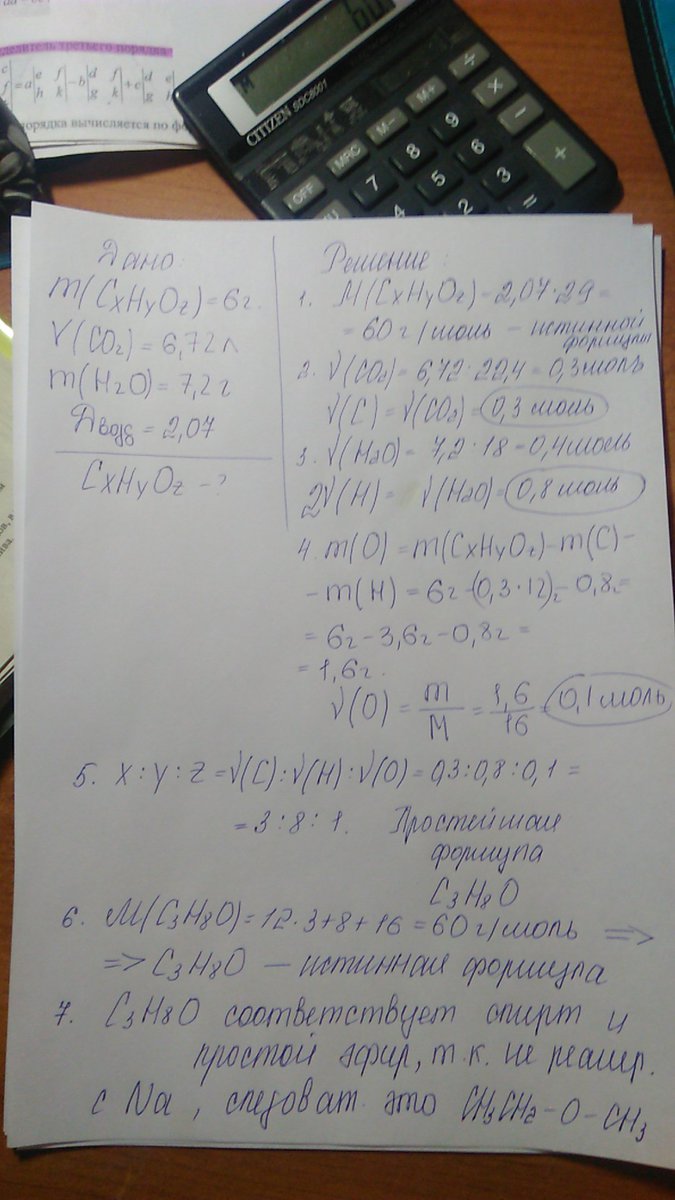 делитель третьего порядка
= a |e f h k| − b |d f g k| + c |d e g h|
порядка вычисляется по фо
CITIZEN SDC8001
M
60
OFF MRC M− M+ ÷
7 8 9 × −
4 5 6 +
2 3 =
Дано:
m(CxHyOz) = 6г.
V(CO2) = 6,72л
m(H2O) = 7,2г
Dвозд = 2,07
CxHyOz − ?
Решение:
1. M(CxHyOz) − 2,07·29 =
= 60 г/моль − истинной
формулы
2. √(CO2) = 6,72:22,4 = 0,3 моль
√(C) = √(CO2) = 0,3 моль
3. √(H2O) = 7,2:18 = 0,4 моль
2√(H) = √(H2O) = 0,8 моль
4. m(O) = m(CxHyOz) − m(C) −
− m(H) = 6г − (0,3·12)г − 0,8г =
= 6г − 3,6г − 0,8г =
= 1,6г.
√(O) = m/M = 1,6/16 = 0,1 моль
5. x : y : z = √(C) : √(H) : √(O) = 0,3 : 0,8 : 0,1 =
= 3 : 8 : 1. Простейшая
формула
C3H8O
6. M(C3H8O) = 12·3+8+16 = 60 г/моль =>
=> C3H8O − истинная формула
7. C3H8O соответствует спирт и
простой эфир, т.к. не реагир.
с Na, следоват. это CH3CH2−O−CH3